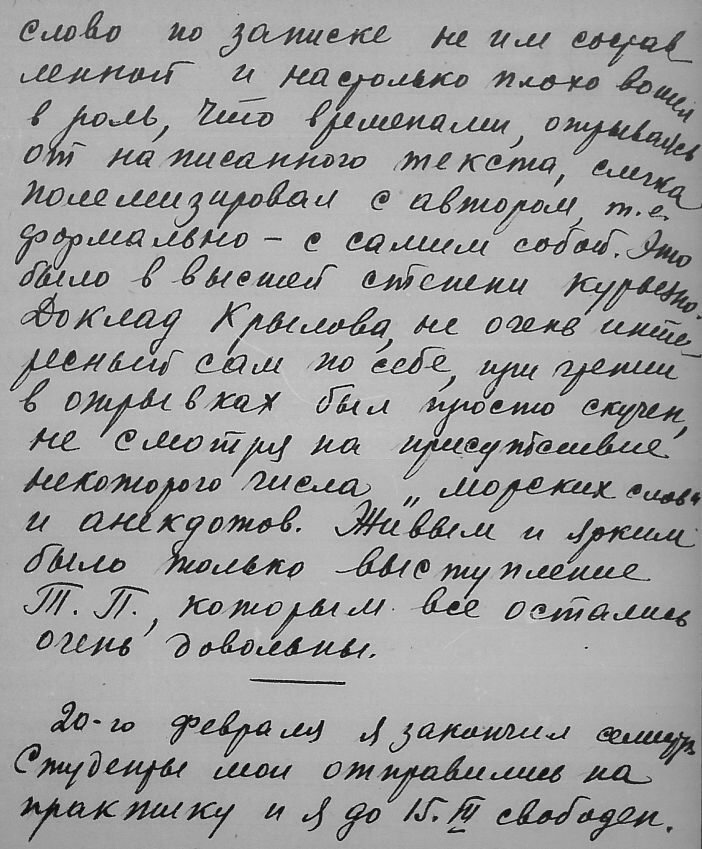 слово по записке не им состав
ленной и настолько плохо вошел
в роль, что временами, отрываясь
от написанного текста, слегка
полемизировал с автором, т.е.
формально – с самим собой. Это
было в высшей степени курьезно.
Доклад Крылова, не очень инте-
ресный сам по себе, при чтении
в отрывках был просто скучен,
не смотря на присутствие
некоторого числа „морских слов"
и анекдотов. Живым и ярким
было только выступление
Т. П., которым все остались
очень довольны.
20-го февраля я закончил семестр.
Студенты мои отправились на
практику и я до 15. III свободен.